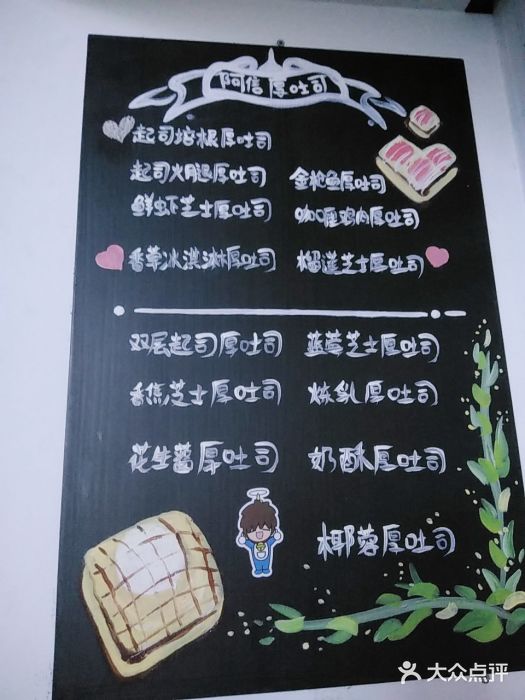 阿信厚吐司
起司培根厚吐司
起司火腿厚吐司 金枪鱼厚吐司
鲜虾芝士厚吐司 咖喱鸡肉厚吐司
香草冰淇淋厚吐司 榴莲芝士厚吐司
双层起司厚吐司 蓝莓芝士厚吐司
香焦芝士厚吐司 炼乳厚吐司
花生酱厚吐司 奶酥厚吐司
椰蓉厚吐司
大众点评